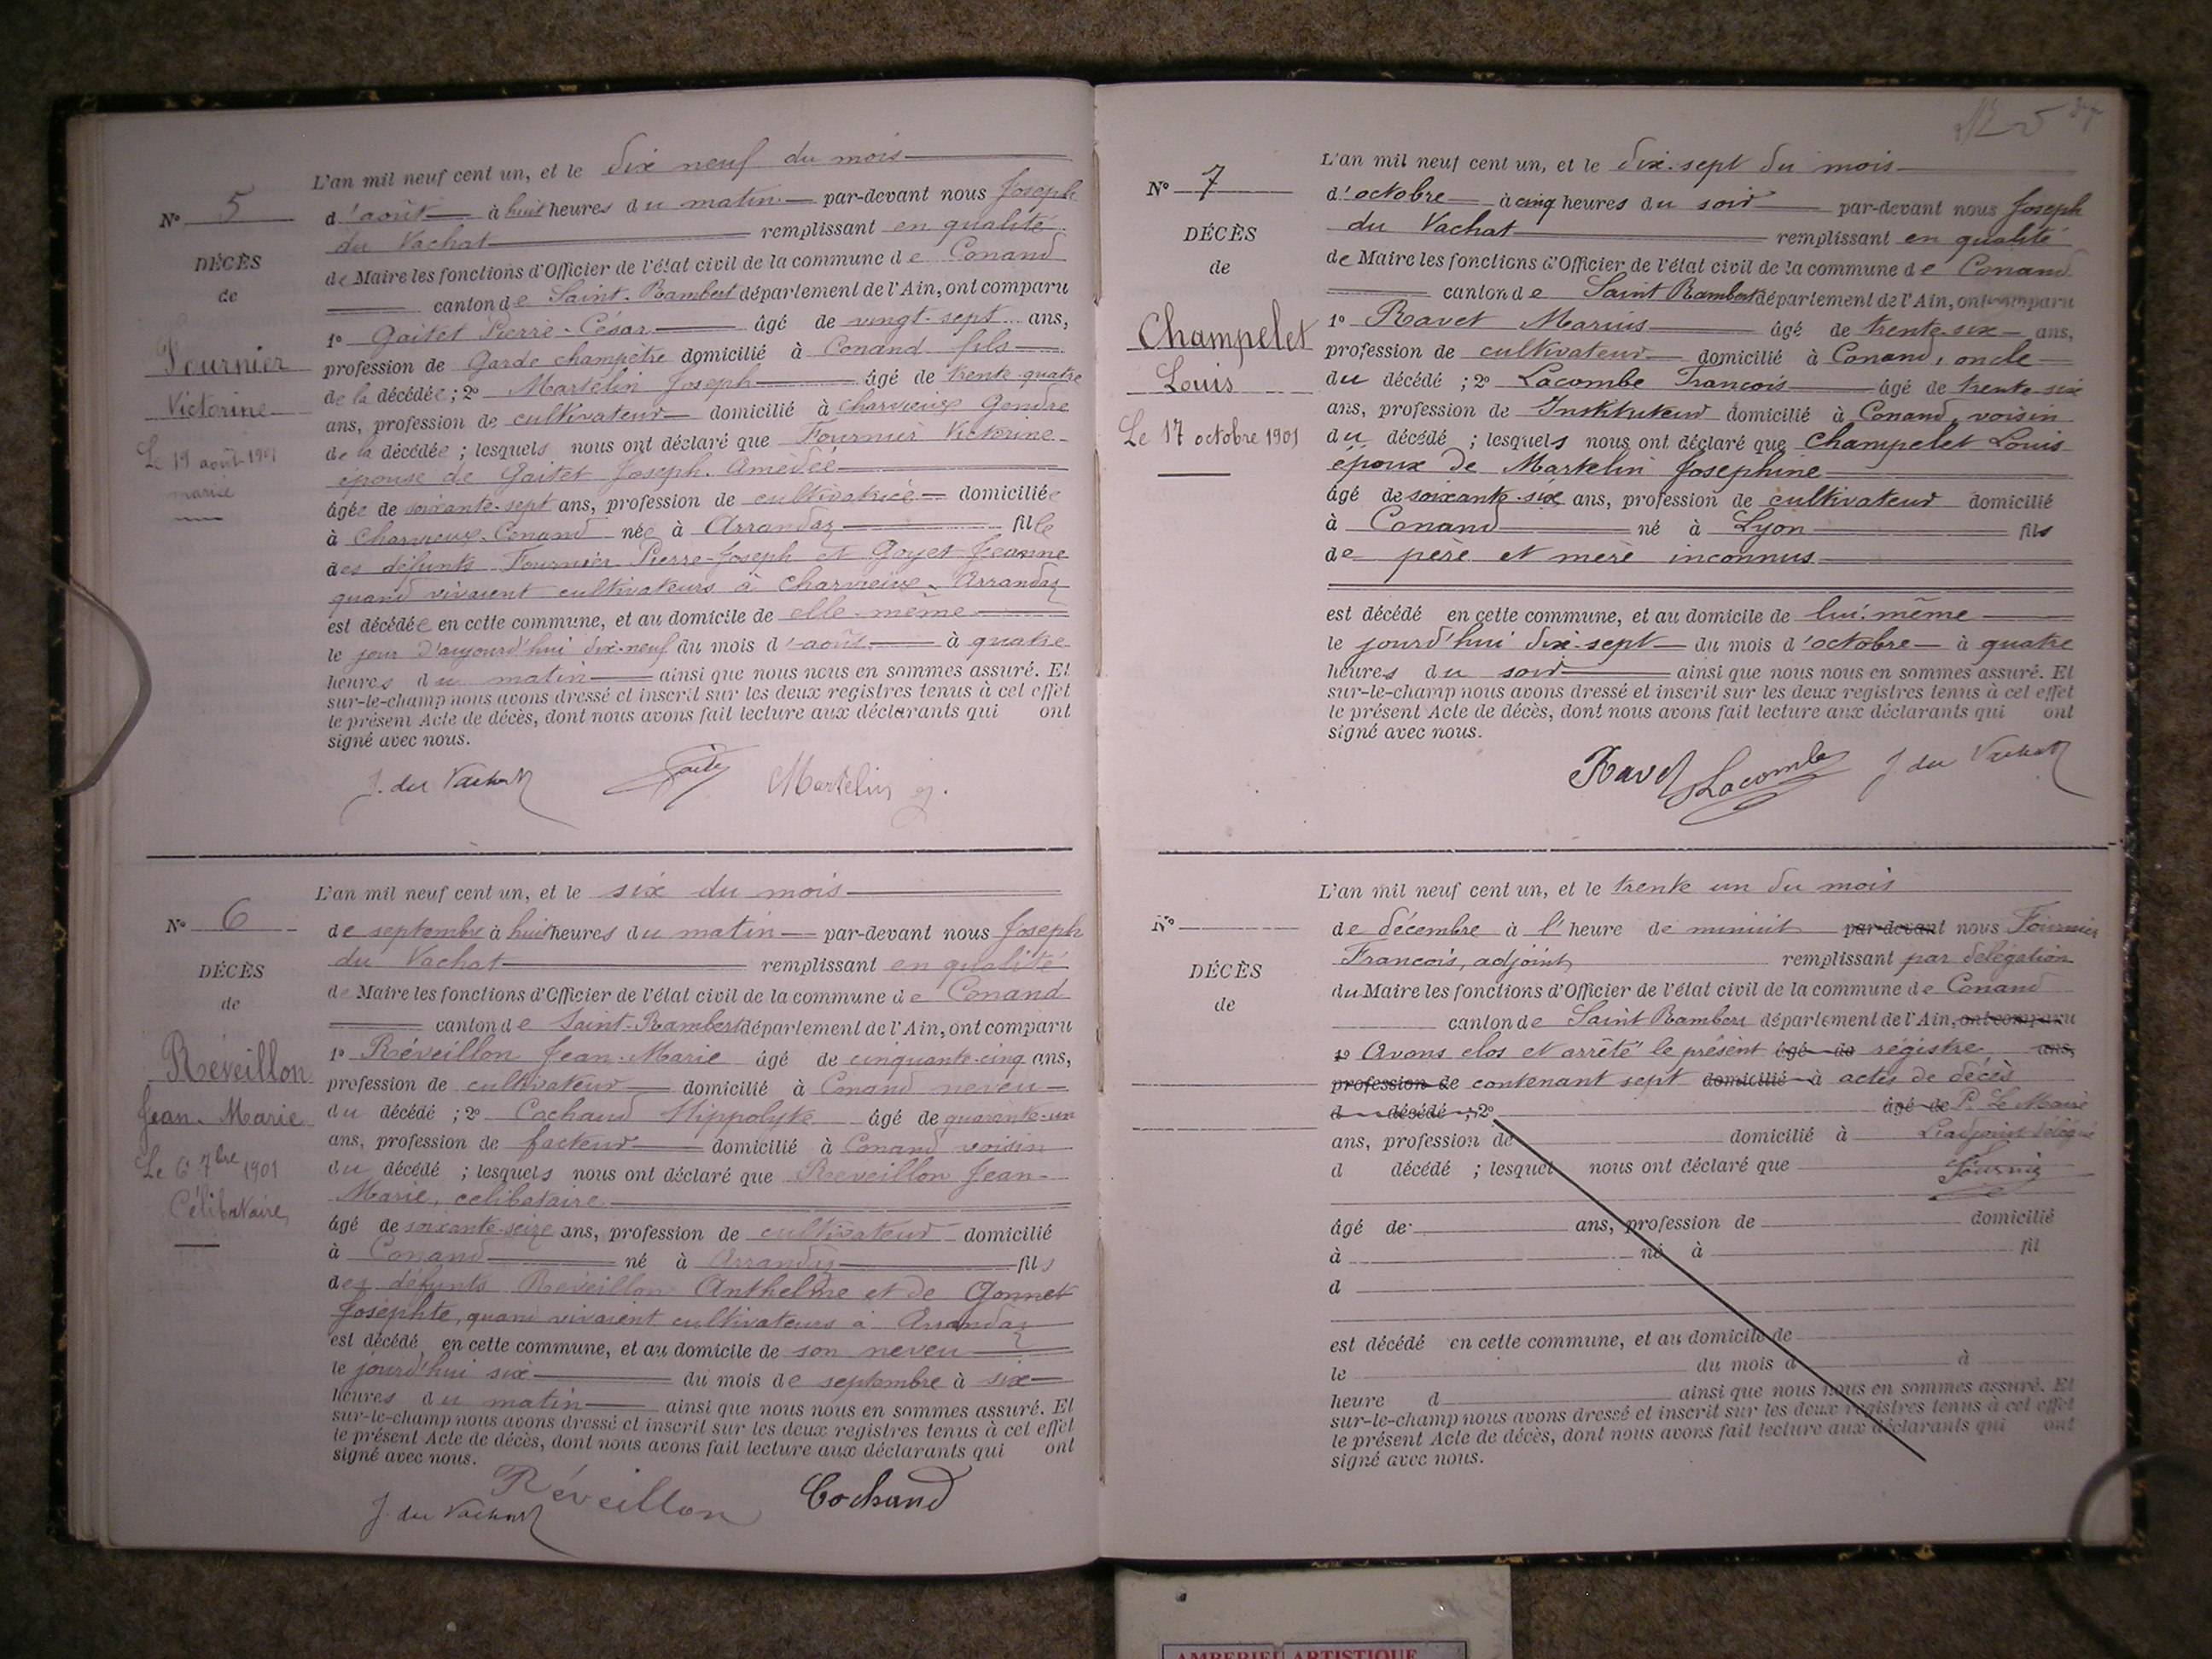 L'an mil neuf cent un, et le dix neuf du mois
N° 5
d'août à huit heures du matin par-devant nous Joseph
du Vachat remplissant en qualité
DÉCÈS
de Maire les fonctions d'Officier de l'état civil de la commune de Conand
de
canton de Saint-Rambert département de l'Ain, ont comparu
1° Gaitet Pierre-César âgé de vingt-sept ans,
Fournier
profession de Garde champêtre domicilié à Conand fils
Victorine
de la décédée ; 2° Martelin Joseph âgé de trente-quatre
ans, profession de cultivateur domicilié à Charvieux Gendre
Le 19 août 1901
de la décédée ; lesquels nous ont déclaré que Fournier Victorine
mariée
épouse de Gaitet Joseph-Amédée
âgée de soixante-sept ans, profession de cultivatrice domiciliée
à Charvieux-Conand née à Arrandaz fille
des défunts Fournier Pierre-Joseph et Goyet Jeanne
quand vivaient cultivateurs à Charvieux-Arrandaz
est décédée en cette commune, et au domicile de elle-même
le jour d'aujourd'hui dix-neuf du mois d'août à quatre
heures du matin ainsi que nous nous en sommes assuré. Et
sur-le-champ nous avons dressé et inscrit sur les deux registres tenus à cet effet
le présent Acte de décès, dont nous avons fait lecture aux déclarants qui ont
signé avec nous.
J. du Vachat Martelin j.
L'an mil neuf cent un, et le six du mois
N° 6
de septembre à huit heures du matin par-devant nous Joseph
du Vachat remplissant en qualité
DÉCÈS
de Maire les fonctions d'Officier de l'état civil de la commune de Conand
de
canton de Saint-Rambert département de l'Ain, ont comparu
1° Réveillon Jean-Marie âgé de cinquante-cinq ans,
Réveillon
profession de cultivateur domicilié à Conand neveu
Jean-Marie
du décédé ; 2° Cochand Hippolyte âgé de quarante-un
ans, profession de facteur domicilié à Conand voisin
Le 6 7bre 1901
du décédé ; lesquels nous ont déclaré que Réveillon Jean-
Célibataire
Marie, celibataire
âgé de soixante-seize ans, profession de cultivateur domicilié
à Conand né à Arrandaz fils
des défunts Réveillon Anthelme et de Gonnet
Josephte, quand vivaient cultivateurs à Arrandaz
est décédé en cette commune, et au domicile de son neveu
le jourd'hui six du mois de septembre à six
heures du matin ainsi que nous nous en sommes assuré. Et
sur-le-champ nous avons dressé et inscrit sur les deux registres tenus à cet effet
le présent Acte de décès, dont nous avons fait lecture aux déclarants qui ont
signé avec nous.
J. du Vachat Réveillon Cochand
L'an mil neuf cent un, et le dix-sept du mois
N° 7
d'octobre à cinq heures du soir par-devant nous Joseph
du Vachat remplissant en qualité
DÉCÈS
de Maire les fonctions d'Officier de l'état civil de la commune de Conand
de
canton de Saint Rambert département de l'Ain, ont comparu
1° Ravet Marius âgé de trente-six ans,
Champelet
profession de cultivateur domicilié à Conand, oncle
Louis
du décédé ; 2° Lacombe François âgé de trente-six
ans, profession de Instituteur domicilié à Conand, voisin
Le 17 octobre 1901
du décédé ; lesquels nous ont déclaré que Champelet Louis
époux de Martelin Josephine
âgé de soixante-six ans, profession de cultivateur domicilié
à Conand né à Lyon fils
de père et mère inconnus
est décédé en cette commune, et au domicile de lui-même
le jourd'hui dix-sept du mois d'octobre à quatre
heures du soir ainsi que nous nous en sommes assuré. Et
sur-le-champ nous avons dressé et inscrit sur les deux registres tenus à cet effet
le présent Acte de décès, dont nous avons fait lecture aux déclarants qui ont
signé avec nous.
Ravet Lacombe J du Vachat
L'an mil neuf cent un, et le trente un du mois
N°
de décembre à l'heure de minuit par-devant nous Fournier
François, adjoint remplissant par délégation
DÉCÈS
du Maire les fonctions d'Officier de l'état civil de la commune de Conand
de
canton de Saint Rambert département de l'Ain, ont comparu
1° Avons clos et arrêté le présent âgé de régistre ans,
profession de contenant sept domicilié à actes de décès
d décédé ; 2° âgé de P. Le Maire
ans, profession de domicilié à L'adjoint délégué
d décédé ; lesquel nous ont déclaré que Fournier
âgé de ans, profession de domicilié
à né à fil
d
est décédé en cette commune, et au domicile de
le du mois d à
heure d ainsi que nous nous en sommes assuré. Et
sur-le-champ nous avons dressé et inscrit sur les deux registres tenus à cet effet
le présent Acte de décès, dont nous avons fait lecture aux déclarants qui ont
signé avec nous.
AMBERIEU ARTISTIQUE